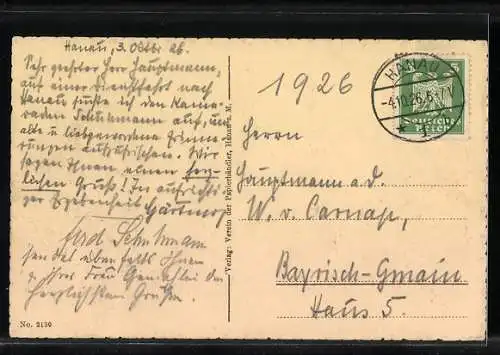 Hanau, 3. Oktbr 26.
Sehr geehrter Herr Hauptmann,
auf einer Dienstfahrt nach
Hanau suchte ich den Kame-
raden Schuhmann auf, um
alte u. liebgewordene Erinne-
rungen aufzufrischen. Wir
sagen Ihnen einen herz-
lichen Gruß! In aufrichti-
ger Ergebenheit Gärtner
Ferd. Schuhmann
sendet ebenfalls Ihnen
u. Ihrer Frau Gemahlin die
herzlichsten Grüße.
No. 2130
Verlag: Verein der Papierhändler, Hanau a. M.
1926
HANAU
-4.10.26.6-7V
* 1
5
Deutsches
Reich
Herrn
Hauptmann a.d.
W. v. Carnap,
Bayrisch-Gmain
Haus 5.